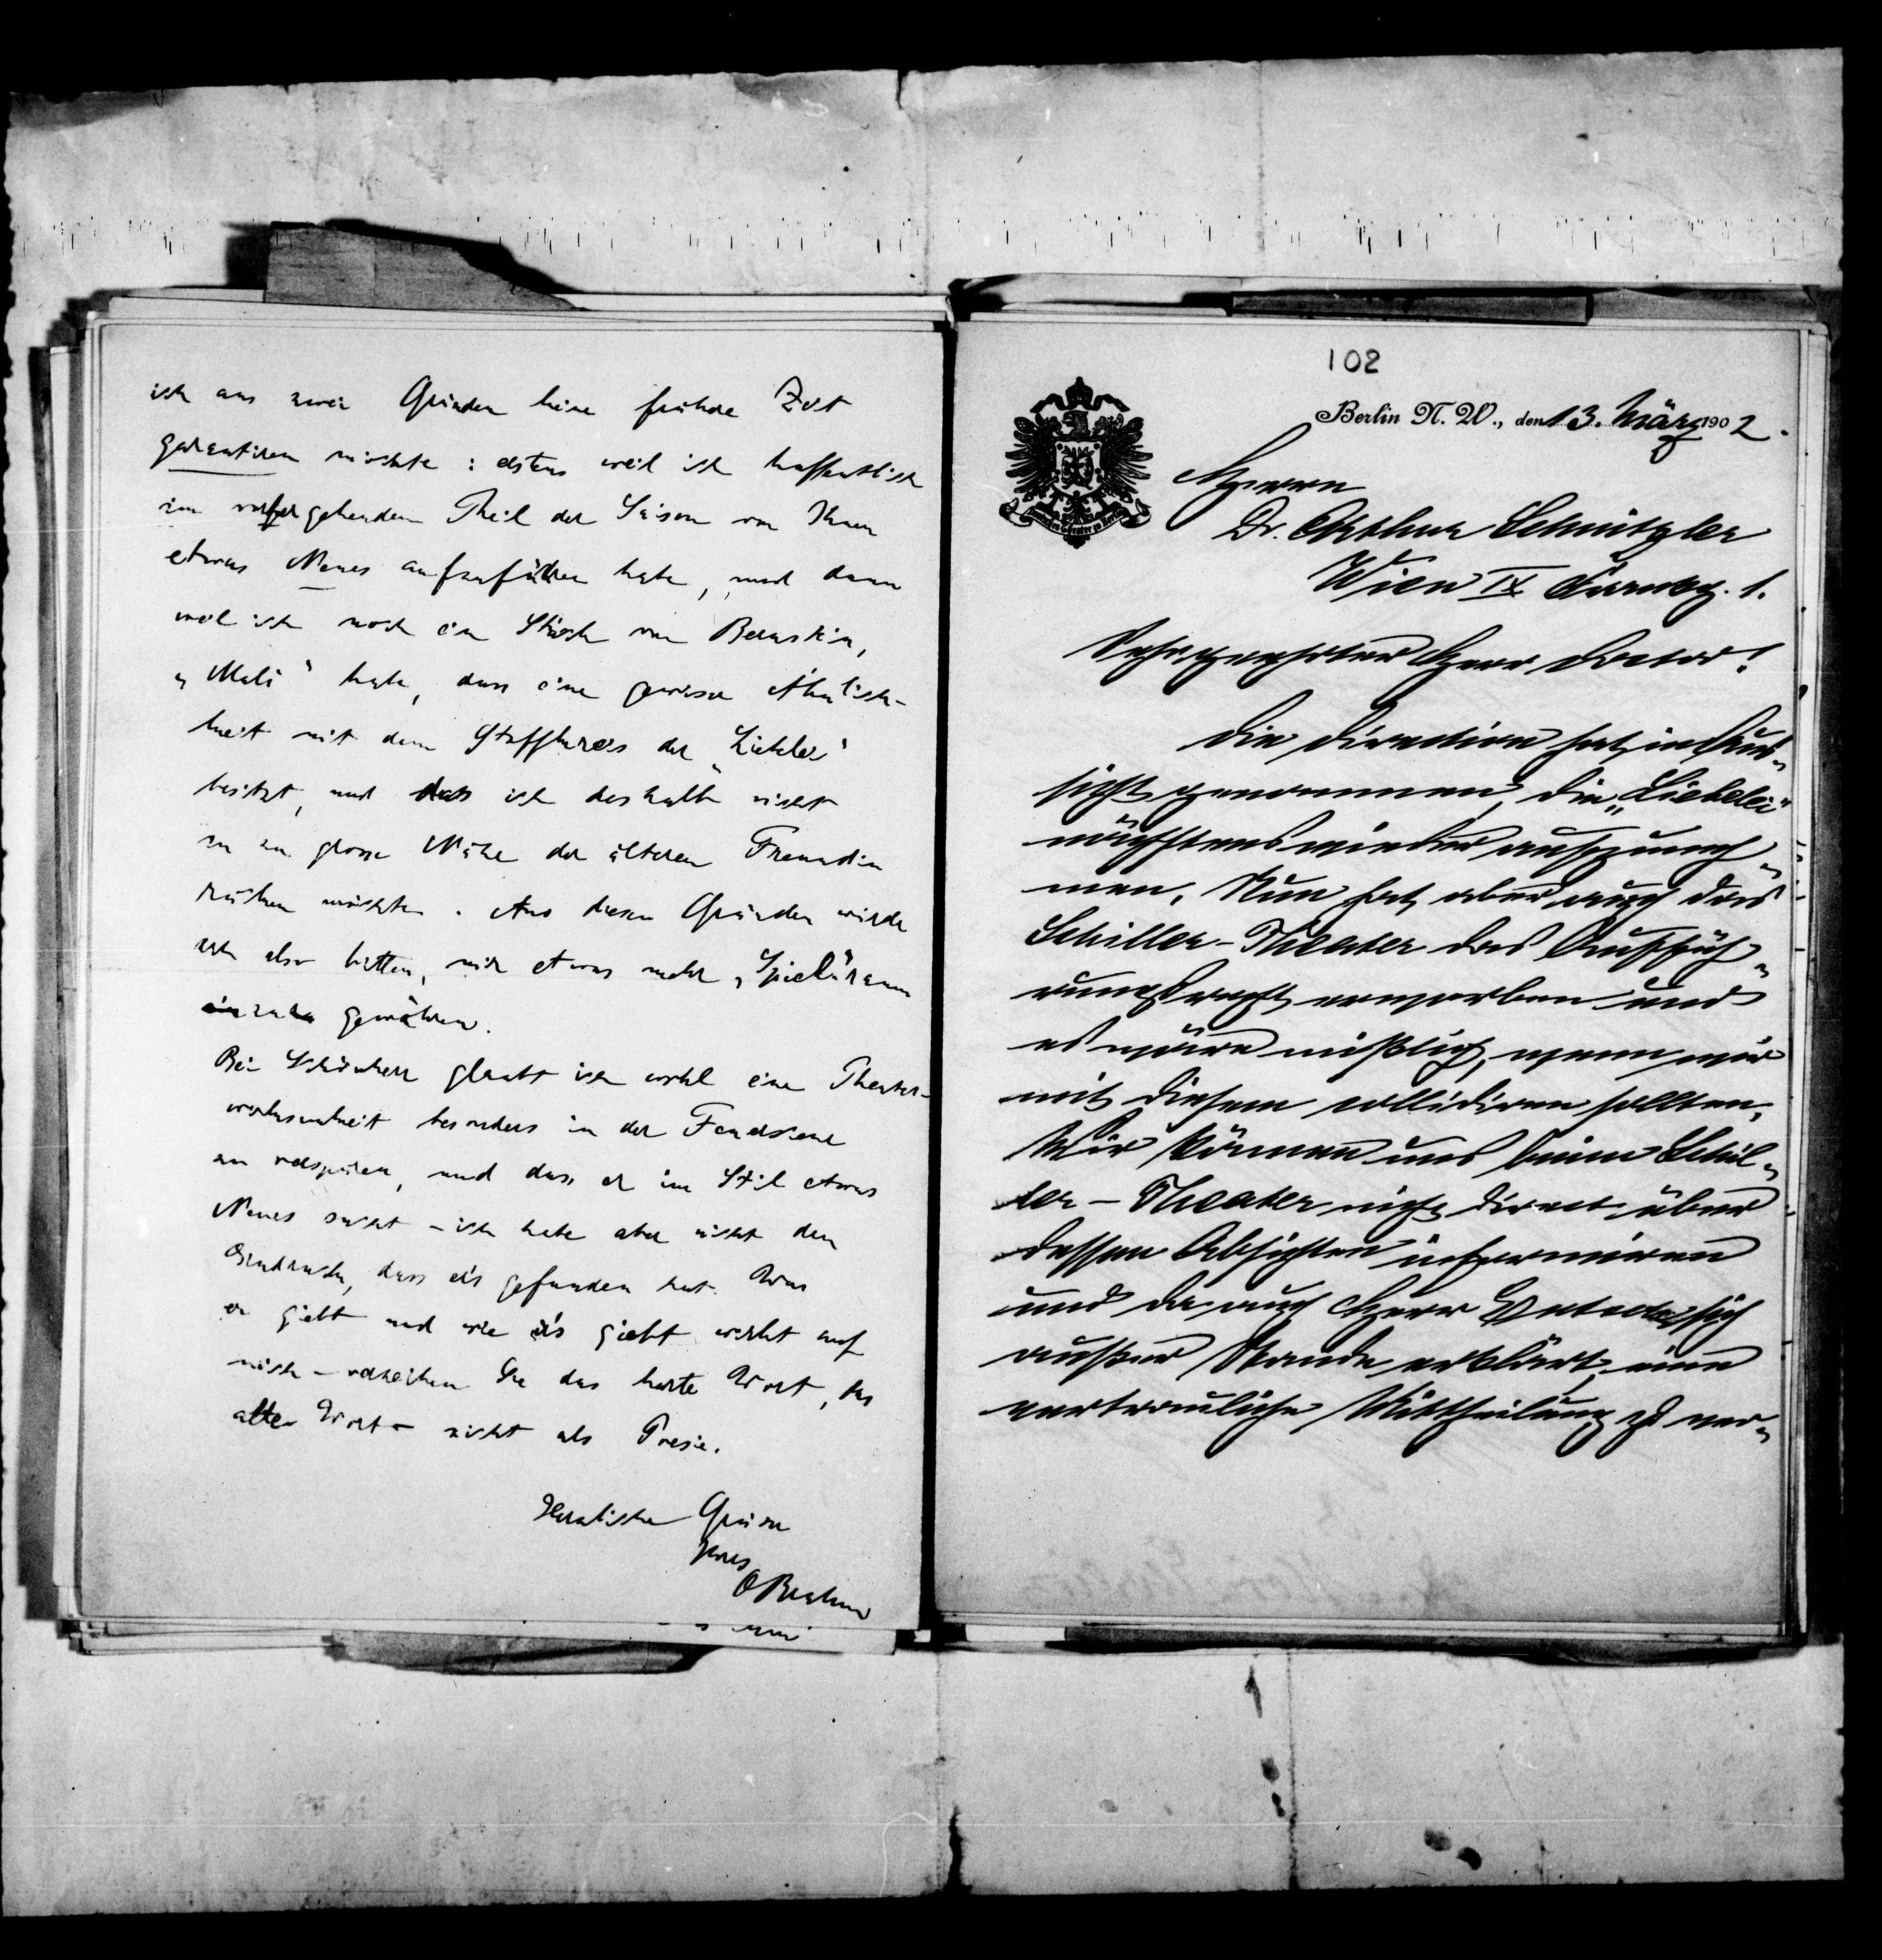 ich aus zwei Gründen keine frühere Zeit
garantiren möchte: erstens weil ich hoffentlich
im vorhergehenden Theil der Saison von Ihnen
etwas Neues aufzuführen habe, und dann
weil ich noch ein Stück von Bernstein,
„Mali“ habe, dass eine gewisse Ähnlich-
keit mit dem Stoffkreis der „Liebelei“
besitzt, und das ich deshalb nicht
in zu grosse Nähe der älteren Freundin
rücken möchte. Aus diesen Gründen würde
ich also bitten, mir etwas mehr „Spiel“raum
zu gewähren.
Bei Schönherr glaubt ich wohl eine Theater-
besonders in der
zu verspüren, und dass er im Stil etwas
Neues sucht – ich habe aber nicht den
Eindruck, dass er's gefunden hat. Was
er giebt und wie er's giebt wirkt auf
mich – verzeihen Sie das harte Wort, das
alte Wort – nicht als Poesie.
Herzliche Grüsse
Ihres
OBrahm
102
Berlin N. W., den 13. März 1902.
Herrn
Dr. Arthur Schnitzler
Wien IX Frankg. 1.
Sehr geehrter Herr Doctor!
Die Direction hat in Aus-
sicht genommen, die „Liebelei“
nächstens wieder aufzuneh-
men. Nun hat aber auch das
Schiller-Theater das Auffüh-
rungsrecht erworben und
es wäre mißlich, wenn wir
mit diesem collidiren sollten.
Wir können uns beim Schil-
ler-Theater nicht direct über
dessen Absichten informiren
und da auch Herr Entsch sich
außer Stande erklärt, eine
vertrauliche Mittheilung zu ver-